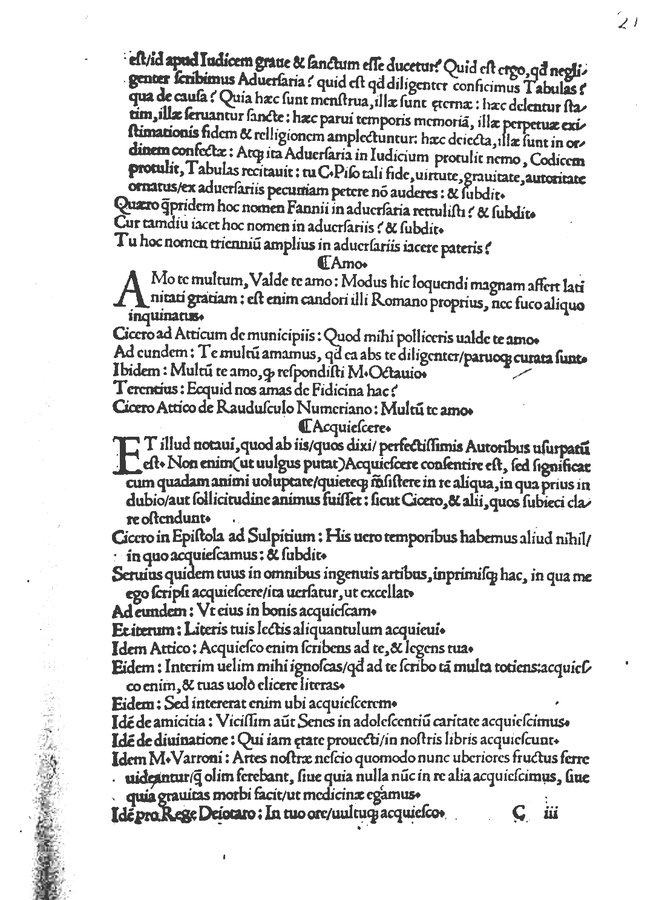 21
est/id apud Iudicem graue & sanctum esse ducetur? Quid est ergo, qđ negli-
genter scribimus Aduersaria? quid est qđ diligenter conficimus Tabulas?
qua de causa? Quia hæc sunt menstrua, illæ sunt ęternæ: hæc delentur sta-
tim, illæ seruantur sancte: hæc parui temporis memoriã, illæ perpetuæ exi-
stimationis fidem & relligionem amplectuntur: hæc deiecta, illæ sunt in or-
dinem confectæ: Atqꝫ ita Aduersaria in Iudicium protulit nemo, Codicem
protulit, Tabulas recitauit: tu C. Piso tali fide, uirtute, grauitate, autoritate
ornatus/ex aduersariis pecuniam petere nõ auderes: & subdit.
Quæro q̃pridem hoc nomen Fannii in aduersaria rettulisti? & subdit.
Cur tamdiu iacet hoc nomen in aduersariis? & subdit.
Tu hoc nomen trienniũ amplius in aduersariis iacere pateris?
¶Amo.
AMo te multum, Valde te amo: Modus hic loquendi magnam affert lati
nitati gratiam: est enim candori illi Romano proprius, nec fuco aliquo
inquinatus.
Cicero ad Atticum de municipiis: Quod mihi polliceris ualde te amo.
Ad eundem: Te multũ amamus, qđ ea abs te diligenter/paruoqꝫ curata sunt.
Ibidem: Multũ te amo, qꝫ respondisti M. Octauio.
Terentius: Ecquid nos amas de Fidicina hac?
Cicero Attico de Raudusculo Numeriano: Multũ te amo.
¶Acquiescere.
ET illud notaui, quod ab iis/quos dixi/perfectissimis Autoribus usurpatũ
est. Non enim(ut uulgus putat)Acquiescere consentire est, sed significat
cum quadam animi uoluptate/quieteqꝫ
sistere in re aliqua, in qua prius in
dubio/aut sollicitudine animus fuisset: sicut Cicero, & alii, quos subieci cla-
re ostendunt.
Cicero in Epistola ad Sulpitium: His uero temporibus habemus aliud nihil/
in quo acquiescamus: & subdit.
Seruius quidem tuus in omnibus ingenuis artibus, inprimisqꝫ hac, in qua me
ego scripsi acquiescere/ita uersatur, ut excellat.
Ad eundem: Vt eius in bonis acquiescam.
Et iterum: Literis tuis lectis aliquantulum acquieui.
Idem Attico: Acquiesco enim scribens ad te, & legens tua.
Eidem: Interim uelim mihi ignoscas/qđ ad te scribo tã multa totiens: acquies-
co enim, & tuas uolo elicere literas.
Eidem: Sed intererat enim ubi acquiescerem.
Idẽ de amicitia: Vicissim aũt Senes in adolescentiũ caritate acquiescimus.
Idẽ de diuinatione: Qui iam ętate prouecti/in nostris libris acquiescunt.
Idem M. Varroni: Artes nostræ nescio quomodo nunc uberiores fructus ferre
uideantur/q̃ olim ferebant, siue quia nulla nũc in re alia acquiescimus, siue
quia grauitas morbi facit/ut medicinæ egẽamus.
Idẽ pro Rege Deiotaro: In tuo ore/uultuqꝫ acquiesco.
C iii